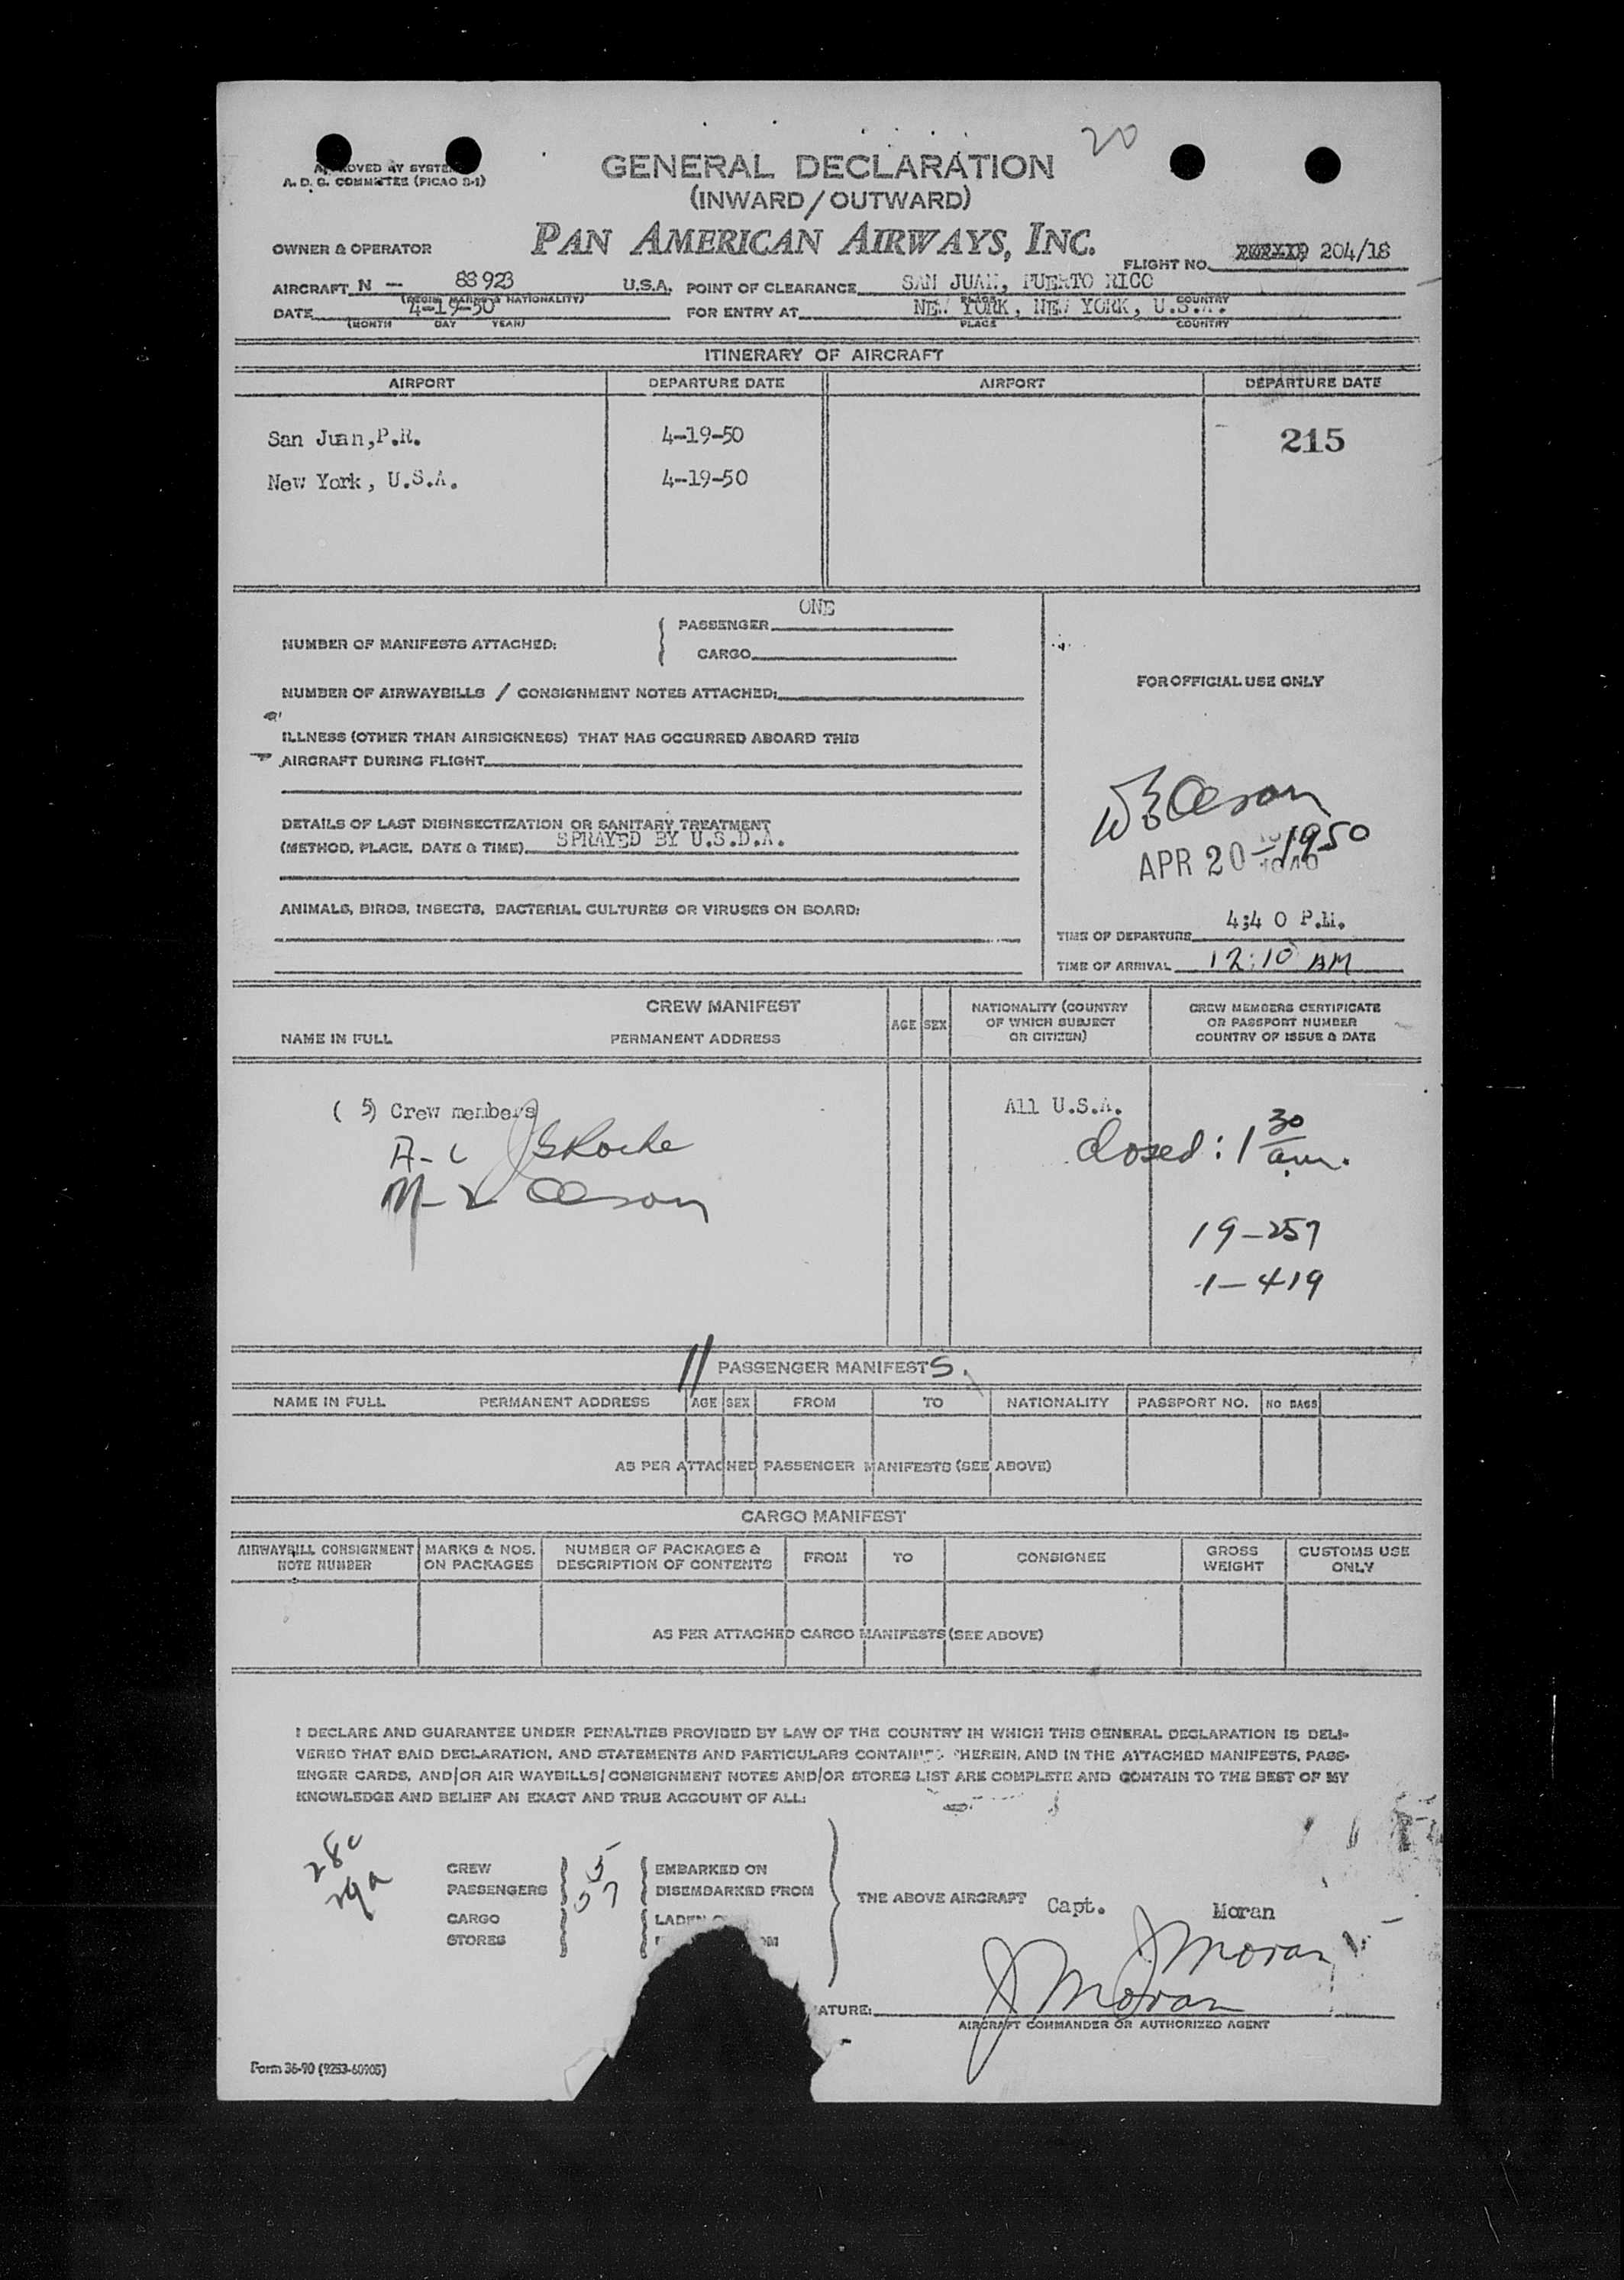 20
APPROVED BY SYSTEM
A. D. C. COMMITTEE (PICAO 8-1)
GENERAL DECLARATION
(INWARD/OUTWARD)
OWNER & OPERATOR
PAN AMERICAN AIRWAYS, INC.
FLIGHT NO. 204/18
AIRCRAFT N - 88923 U.S.A. POINT OF CLEARANCE SAN JUAN, PUERTO RICO
(REGIS. MARKS & NATIONALITY) PLACE COUNTRY
DATE 4-19-50 FOR ENTRY AT NEW YORK, NEW YORK, U.S.A.
(MONTH DAY YEAR) PLACE COUNTRY
ITINERARY OF AIRCRAFT
AIRPORT DEPARTURE DATE AIRPORT DEPARTURE DATE
San Juan,P.R. 4-19-50 215
New York, U.S.A. 4-19-50
ONE
NUMBER OF MANIFESTS ATTACHED: { PASSENGER
CARGO
FOR OFFICIAL USE ONLY
NUMBER OF AIRWAYBILLS / CONSIGNMENT NOTES ATTACHED:
ILLNESS (OTHER THAN AIRSICKNESS) THAT HAS OCCURRED ABOARD THIS
AIRCRAFT DURING FLIGHT
DETAILS OF LAST DISINSECTIZATION OR SANITARY TREATMENT
(METHOD, PLACE, DATE & TIME) SPRAYED BY U.S.D.A.
APR 20 - 1950
ANIMALS, BIRDS, INSECTS, BACTERIAL CULTURES OR VIRUSES ON BOARD:
TIME OF DEPARTURE 4:40 P.M.
TIME OF ARRIVAL 12:10 AM
CREW MANIFEST
NAME IN FULL PERMANENT ADDRESS AGE SEX NATIONALITY (COUNTRY OF WHICH SUBJECT OR CITIZEN) CREW MEMBERS CERTIFICATE OR PASSPORT NUMBER COUNTRY OF ISSUE & DATE
( 5) Crew members All U.S.A.
Closed: 1 30 a.m.
19-257
1-419
11 PASSENGER MANIFESTS.
NAME IN FULL PERMANENT ADDRESS AGE SEX FROM TO NATIONALITY PASSPORT NO. NO BAGS
AS PER ATTACHED PASSENGER MANIFESTS (SEE ABOVE)
CARGO MANIFEST
AIRWAYBILL CONSIGNMENT NOTE NUMBER MARKS & NOS. ON PACKAGES NUMBER OF PACKAGES & DESCRIPTION OF CONTENTS FROM TO CONSIGNEE GROSS WEIGHT CUSTOMS USE ONLY
AS PER ATTACHED CARGO MANIFESTS (SEE ABOVE)
I DECLARE AND GUARANTEE UNDER PENALTIES PROVIDED BY LAW OF THE COUNTRY IN WHICH THIS GENERAL DECLARATION IS DELI-
VERED THAT SAID DECLARATION, AND STATEMENTS AND PARTICULARS CONTAINED THEREIN, AND IN THE ATTACHED MANIFESTS, PASS-
ENGER CARDS, AND/OR AIR WAYBILLS/CONSIGNMENT NOTES AND/OR STORES LIST ARE COMPLETE AND CONTAIN TO THE BEST OF MY
KNOWLEDGE AND BELIEF AN EXACT AND TRUE ACCOUNT OF ALL:
28c
29a
CREW 5 EMBARKED ON
PASSENGERS 57 DISEMBARKED FROM
THE ABOVE AIRCRAFT Capt. Moran
CARGO
STORES
J Moran
ATURE: J Moran
AIRCRAFT COMMANDER OR AUTHORIZED AGENT
Form 36-90 (9253-60905)